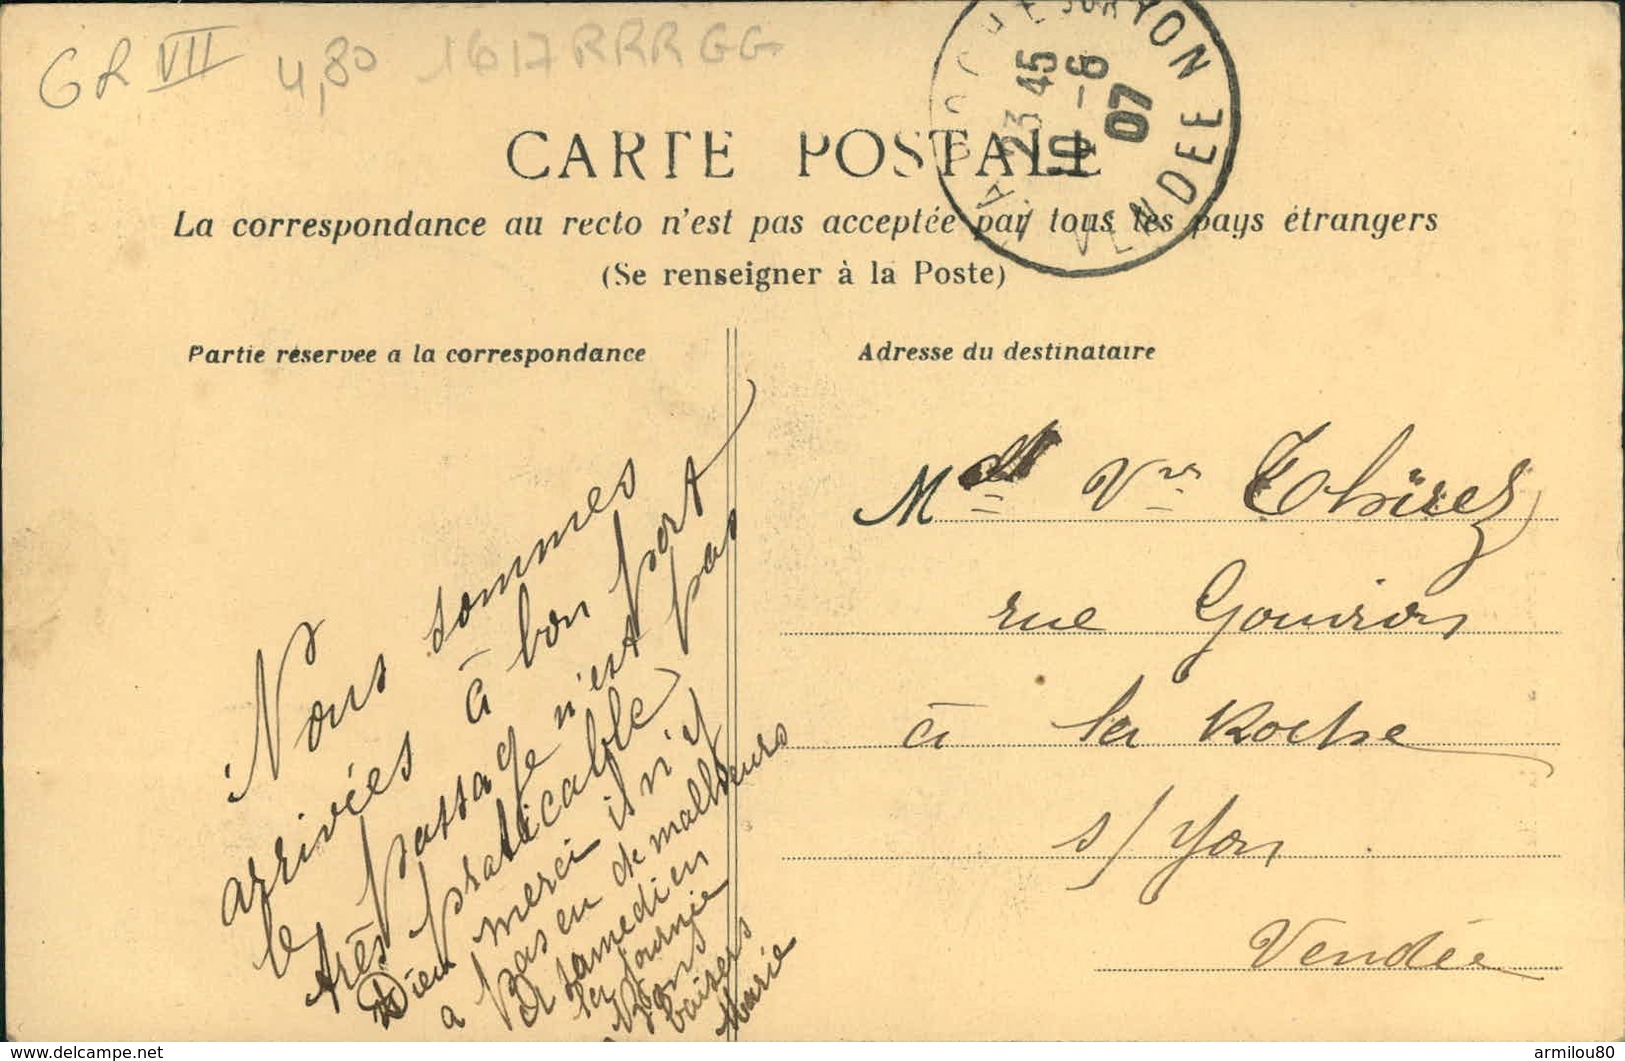 GR VII 4,80 1617 RRRGG
SUR YON
23 45
10 -6
07
VENDEE
CARTE POSTALE
La correspondance au recto n'est pas acceptée par tous les pays étrangers
(Se renseigner à la Poste)
Partie réservée a la correspondance
Nous sommes
arrivées à bon port
le passage n'est pas
très praticable
Dieu merci il n'y
a pas eu de malheurs
samedi
journée
Bons
baisers
Marie
Adresse du destinataire
Vve
rue
à la Roche
s/ Yon
Vendée
armilou80